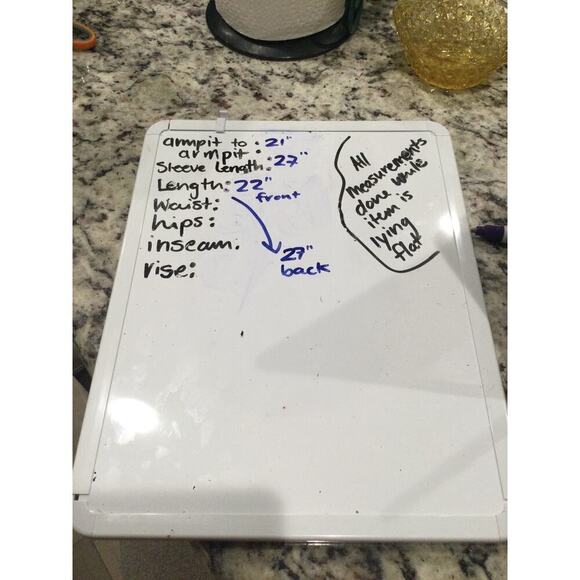 armpit to : 21"
armpit :
Sleeve Length: 27"
Length: 22"
front
Waist:
hips:
inseam:
rise:
27"
back
All
measurements
done while
item is
lying
flat